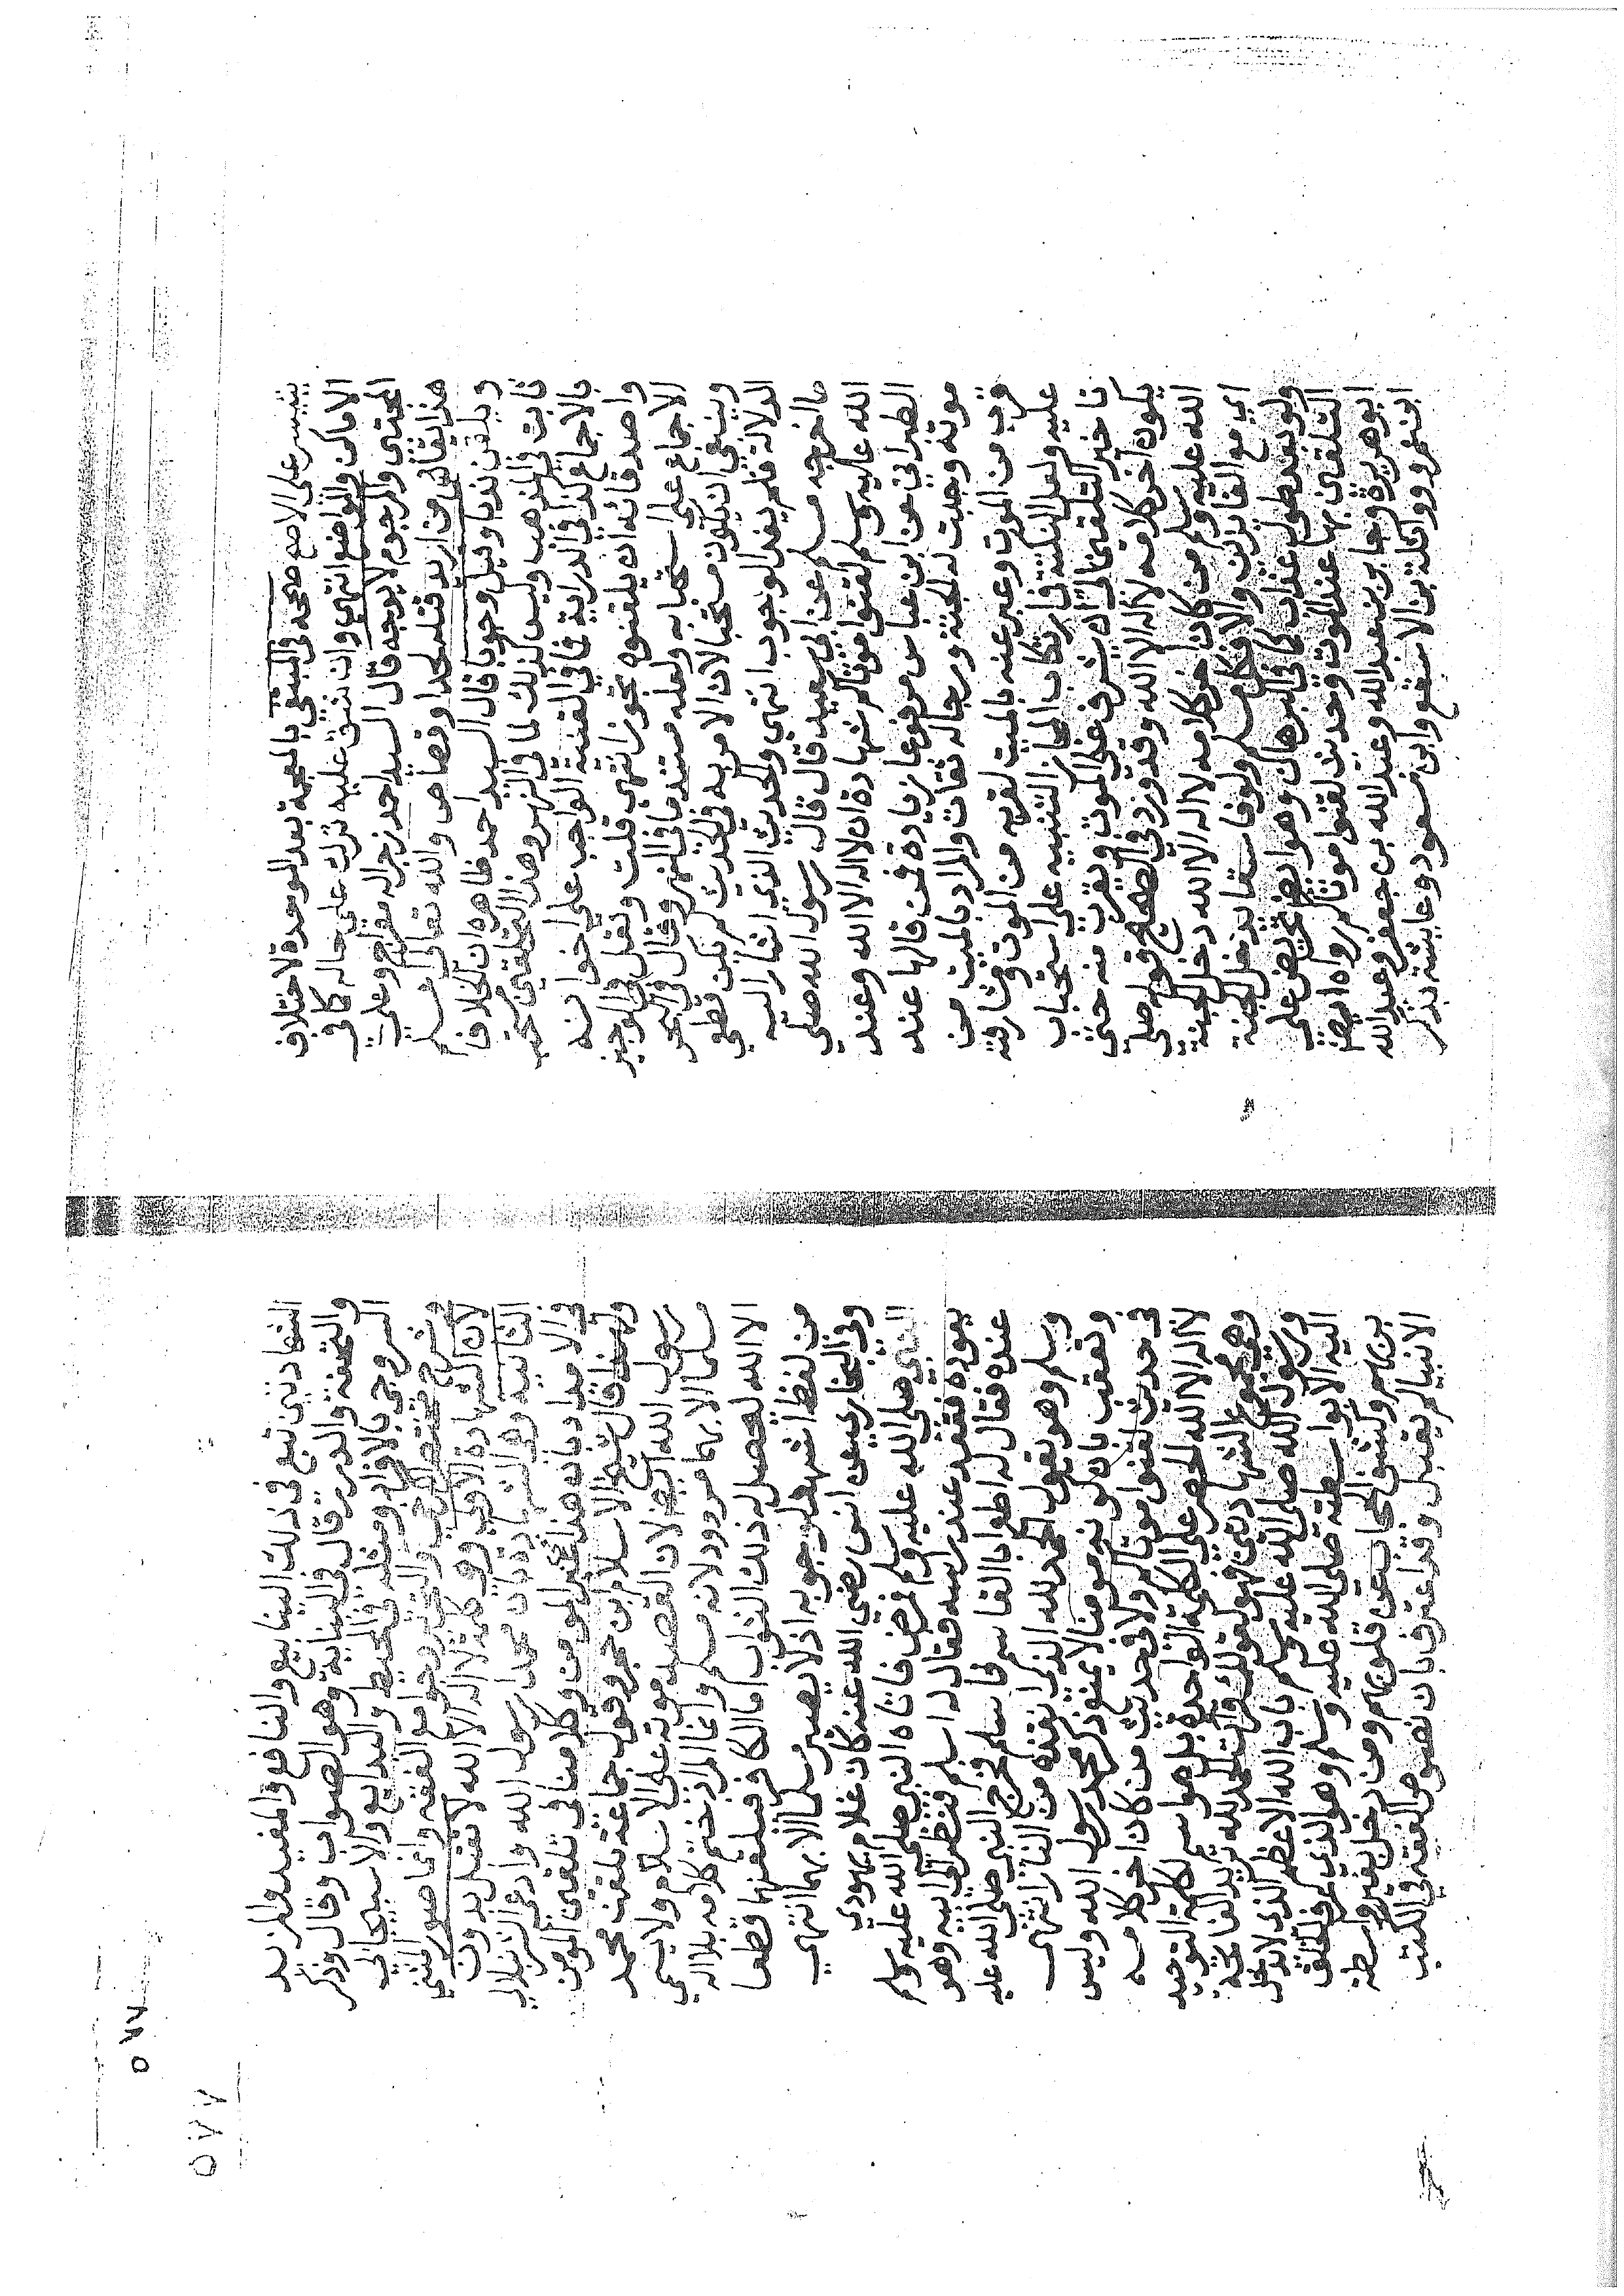 يتيسر على الاصح صححه في المبتغى بالمعجمة بعد الموحدة لاختلاف
الاماكن والمواضع انتهى وان شق عليه ترك على حاله كما في
المجتبى والمرجوم لا يوجه قال السيد احمد زجرا له وعلى
هذا يقاس من اريد قتله لحد او قصاص والله تعالى
ويلقن ندبا وقيل وجوبا قال السيد احمد ظاهره ان الخلاف
ثابت في المذهب وليس كذلك لما في النهر وهذا التلقين مستحب
بالاجماع كذا في الدراية فما في القنية الواجب على اخوانه
واصدقائه ان يلقنوه تجوز انتهى قلت ونقل في الوجيز
الاجماع على استحبابه ولعله مستند ما في النهر وقال في البحر
وينبغي ان يكون مستحبا لان الامر به في الحديث لم يكن قطعي
الدلالة فلم يفد الوجوب انتهى والحديث الذي اشار اليه
ما اخرجه مسلم عن ابي سعيد قال قال رسول الله صلى
الله عليه وسلم لقنوا موتاكم شهادة ان لا اله الا الله وعند
الطبراني عن ابن عباس مرفوعا بزيادة فمن قالها عند
موته وجبت له الجنة ورجاله ثقات والمراد بالميت من
قرب من الموت وعبر عنه بالميت لقربه من الموت ومشارفته
عليه ولعل النكتة في ارتكاب المجاز التنبيه على استحباب
تاخير التلقين الى ان يشرف على الموت ويقرب منه حتى
يكون اخر كلامه لا اله الا الله وقد ورد في الصحيح قوله صلى
الله عليه وسلم من كان اخر كلامه لا اله الا الله دخل الجنة
اي مع الفائزين والا فكل مسلم ولو فاسقا يدخل الجنة
ولو بعد طول عذاب كما في البرهان وهو ايضا تحريض على
التلقين بها عند الموت وحديث لقنوا موتاكم رواه ايضا
ابو هريرة وجابر بن عبد الله وعبد الله بن جعفر وعبد الله
ابن عمر وواثلة بن الاسقع وابن مسعود وعايشة بذكر
٥٧٧
٥٧٧
الشهادتين تبع في ذلك الينابيع والنافع والمفيد والمزيد
والتحفة والدرر قال في البناية وهو الصواب وقال وذكر
السروجي بالافراد ومثله في المحيط والبدايع والاسبيجابي
وشرح مختصر والتحرير وجوامع الفقه وانما صور المثنى
لان الشهادة الاولى وهي كلمة لا اله الا الله لا تقبل بدون
الثانية وهو الشهادة بان محمدا رسول الله وادعى الشرنبلالي
في الامداد بانه هذا في غير المومن وكلامنا في تلقين المومن
ولهذا قال شيخ الاسلام بن حجر وقول جماعة تلقن محمد
رسول الله ايضا لان القصد موته على الاسلام ولا يسمى
مسلما الا بهما مردود لانه مسلم وانما المراد ختم كلامه بلا اله
الا الله لتحصل له ذلك الثواب اما الكافر فيلقنهما قطعا
من لفظ اشهد لوجوبه اذ لا يصير مسلما الا بهما انتهى
وفي البخاري عن انس رضي الله عنه كان غلام يهودي
النبي صلى الله عليه وسلم فمرض فاتاه النبي صلى الله عليه وسلم
يعوده فقعد عند راسه فقال له اسلم فنظر الى ابيه وهو
عنده فقال له اطع ابا القاسم فاسلم فخرج النبي صلى الله عليه
وسلم وهو يقول الحمد لله الذي انقذه من النار انتهى
وتعقب بان كونه مومنا لا يمنع ذكر محمد رسول الله وليس
في حديث لقنوا موتاكم ولا في حديث من كان اخر كلامه
لا اله الا الله الحصر على الكلمة الواحدة بل هو اسم لكلمة التوحيد
وهو مجموع الشهادتين فهو كقولك قرات الحمد لله تريد الفاتحة
ورسول الله صلى الله عليه وسلم باب الله الاعظم الذي لا يدخل
اليه الا بواسطته صلى الله عليه وسلم وهو الذي عرف الخلق
بربهم وكشف الحجاب عن قلوبهم ومن دخل بغير واسطة
الانبيا لم يقبل وقد اعترف بان نصوص الفقه في الكتب